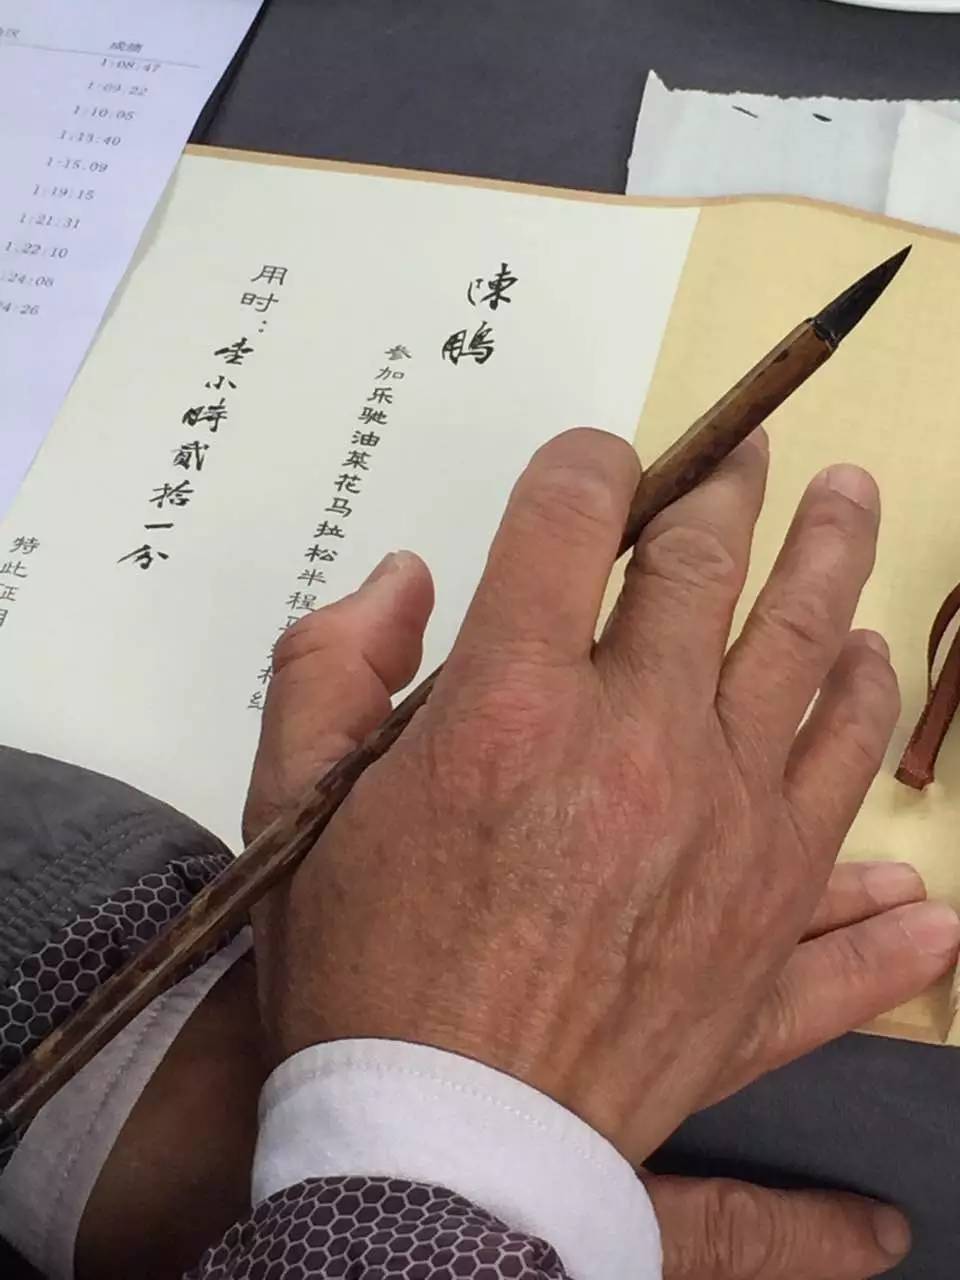 成绩
1:08:47
1:09:22
1:10:05
1:13:40
1:15:09
1:19:15
1:21:31
1:22:10
:24:08
4:26
陳鵬
参加乐驰油菜花马拉松半程马
用时：壹小時貳拾一分
特此证明